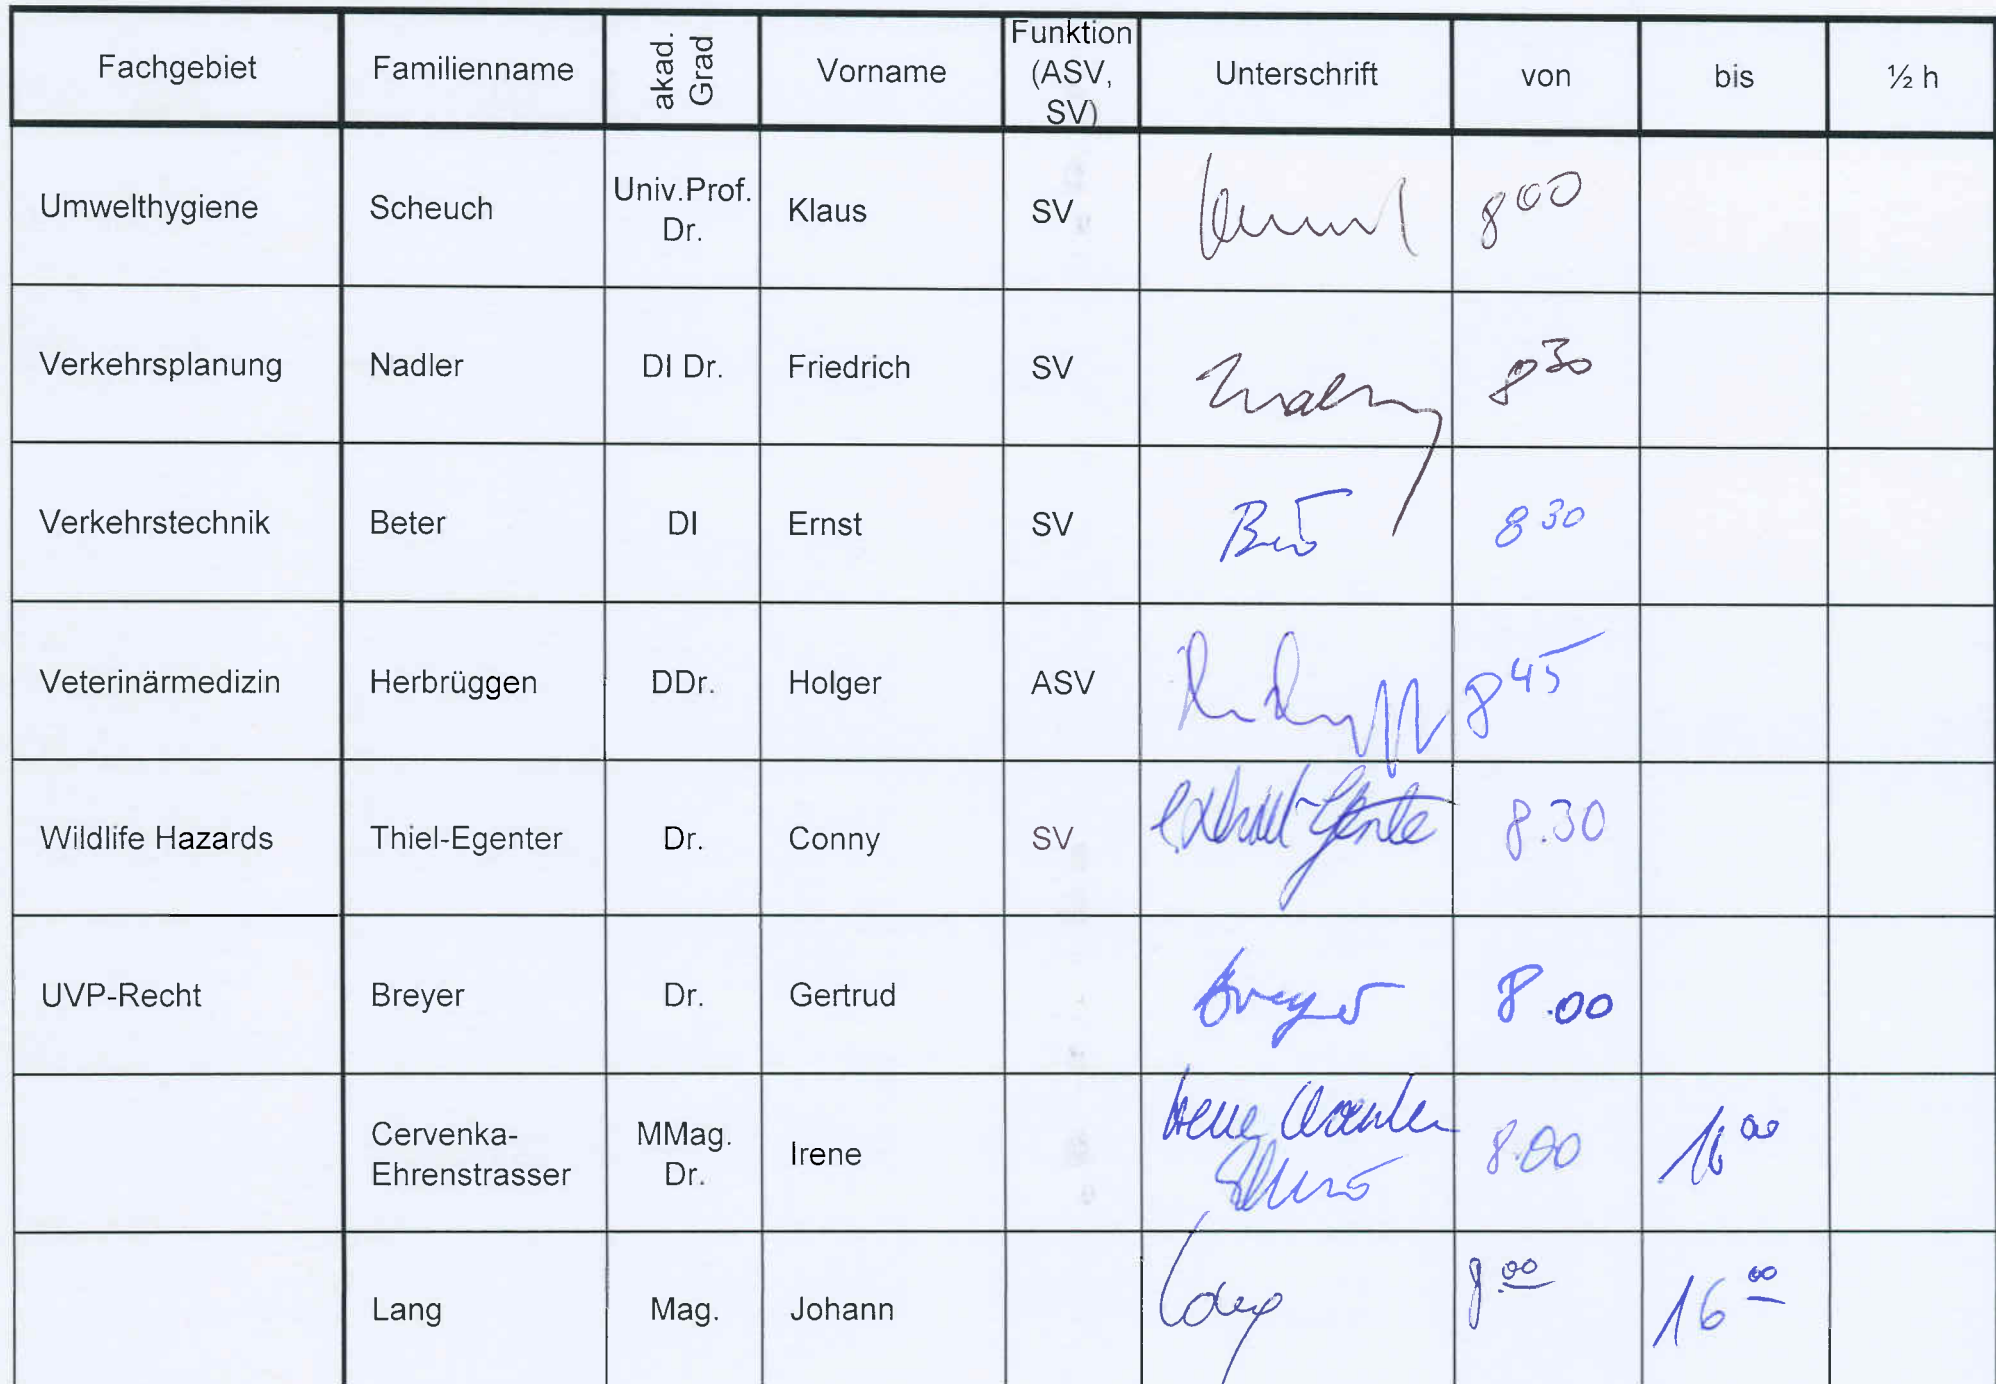 Fachgebiet Familienname akad. Grad Vorname Funktion (ASV, SV) Unterschrift von bis ½ h
Umwelthygiene Scheuch Univ.Prof. Dr. Klaus SV 8 00
Verkehrsplanung Nadler DI Dr. Friedrich SV 8 30
Verkehrstechnik Beter DI Ernst SV 8 30
Veterinärmedizin Herbrüggen DDr. Holger ASV 8 45
Wildlife Hazards Thiel-Egenter Dr. Conny SV 8.30
UVP-Recht Breyer Dr. Gertrud Breyer 8.00
Cervenka-Ehrenstrasser MMag. Dr. Irene 8.00 16 00
Lang Mag. Johann Lang 8 00 16 00